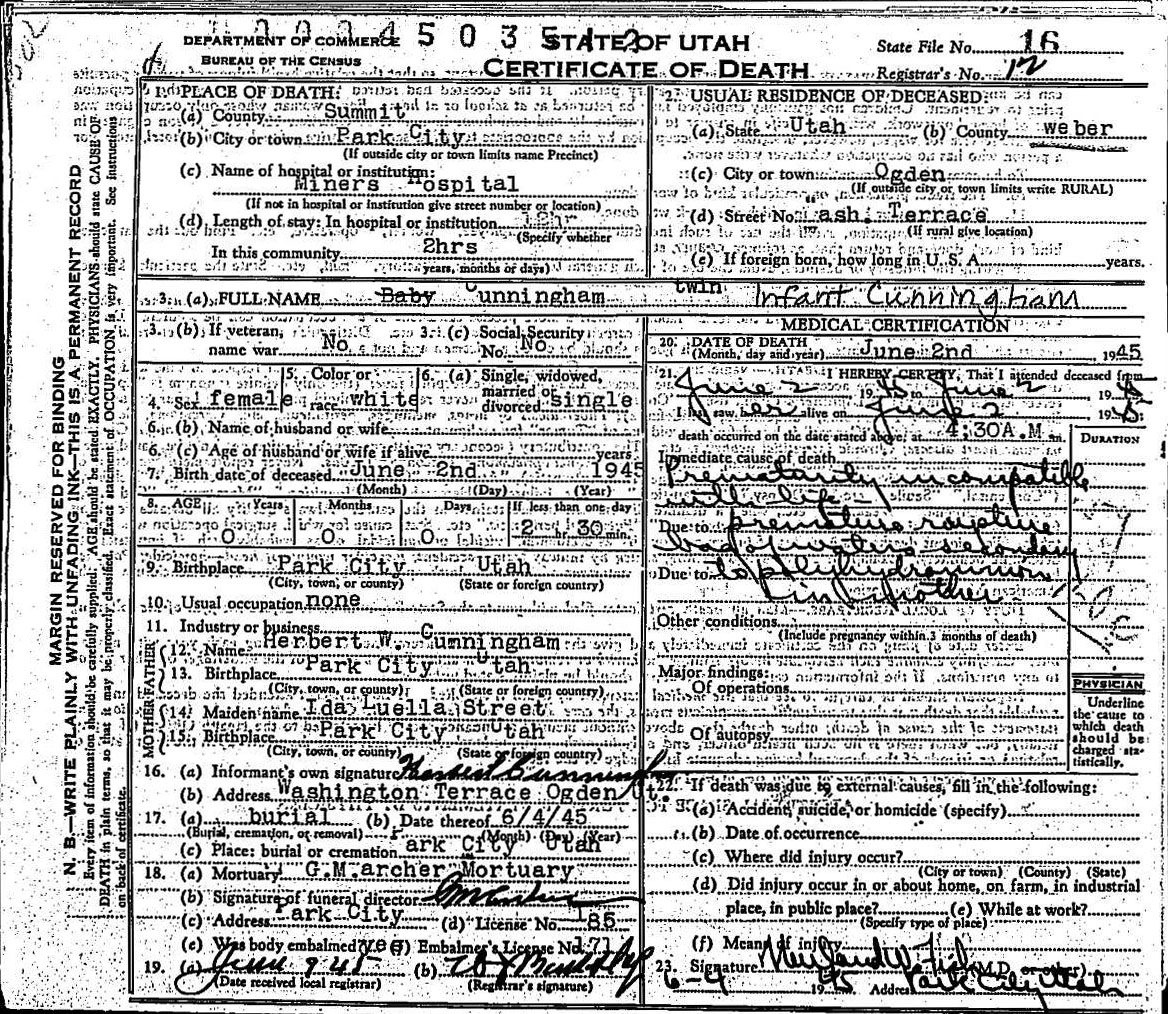 DEPARTMENT OF COMMERCE
BUREAU OF THE CENSUS
STATE OF UTAH
CERTIFICATE OF DEATH
State File No. 16
Registrar's No. 12
MARGIN RESERVED FOR BINDING
N. B.—WRITE PLAINLY WITH UNFADING INK—THIS IS A PERMANENT RECORD
Every item of information should be carefully supplied. AGE should be stated EXACTLY. PHYSICIANS should state CAUSE OF
DEATH in plain terms, so that it may be properly classified. Exact statement of OCCUPATION is very important. See instructions
on back of certificate.
1. PLACE OF DEATH:
(a) County Summit
(b) City or town Park City
(If outside city or town limits name Precinct)
(c) Name of hospital or institution:
Miners Hospital
(If not in hospital or institution give street number or location)
(d) Length of stay: In hospital or institution
(Specify whether
In this community 2hrs
years, months or days)
2. USUAL RESIDENCE OF DECEASED:
(a) State Utah (b) County weber
(c) City or town Ogden
(If outside city or town limits write RURAL)
(d) Street No. ash. Terrace
(If rural give location)
(e) If foreign born, how long in U. S. A. years.
3. (a) FULL NAME Baby Cunningham twin Infant Cunningham
3. (b) If veteran, name war No
3. (c) Social Security No. No
4. Sex female
5. Color or race white
6. (a) Single, widowed, married or divorced single
6. (b) Name of husband or wife
6. (c) Age of husband or wife if alive years
7. Birth date of deceased June 2nd 1945
(Month) (Day) (Year)
8. AGE Years Months Days If less than one day
0 0 0 2 hr. 30 min.
9. Birthplace Park City Utah
(City, town, or county) (State or foreign country)
10. Usual occupation none
11. Industry or business
FATHER
12. Name Herbert W. Cunningham
13. Birthplace Park City Utah
(City, town, or county) (State or foreign country)
MOTHER
14. Maiden name Ida Luella Street
15. Birthplace Park City Utah
(City, town, or county) (State or foreign country)
16. (a) Informant's own signature Herbert Cunningham
(b) Address Washington Terrace Ogden Ut.
17. (a) burial (b) Date thereof 6/4/45
(Burial, cremation, or removal) (Month) (Day) (Year)
(c) Place: burial or cremation Park City Utah
18. (a) Mortuary G.M.archer Mortuary
(b) Signature of funeral director
(c) Address Park City (d) License No. 185
(e) Was body embalmed yes (f) Embalmer's License No. 171
19. (a) June 9 45 (b)
(Date received local registrar) (Registrar's signature)
MEDICAL CERTIFICATION
20. DATE OF DEATH
(Month, day and year) June 2nd, 1945
21. I HEREBY CERTIFY, That I attended deceased from
June 2 1945 to June 2 1945
I last saw her alive on June 2 1945:
death occurred on the date stated above, at 4.30A.M m.
DURATION
Immediate cause of death
Prematurity incompatible
with life -
Due to premature rupture
bag of waters secondary
Due to to polyhydramnios
in mother
Other conditions
(Include pregnancy within 3 months of death)
Major findings:
Of operations
Of autopsy
PHYSICIAN
Underline
the cause to
which death
should be
charged sta-
tistically.
22. If death was due to external causes, fill in the following:
(a) Accident, suicide, or homicide (specify)
(b) Date of occurrence
(c) Where did injury occur?
(City or town) (County) (State)
(d) Did injury occur in or about home, on farm, in industrial
place, in public place? (e) While at work?
(Specify type of place)
(f) Means of injury
23. Signature (M.D. or other)
6-4 1945 Address Park City Utah